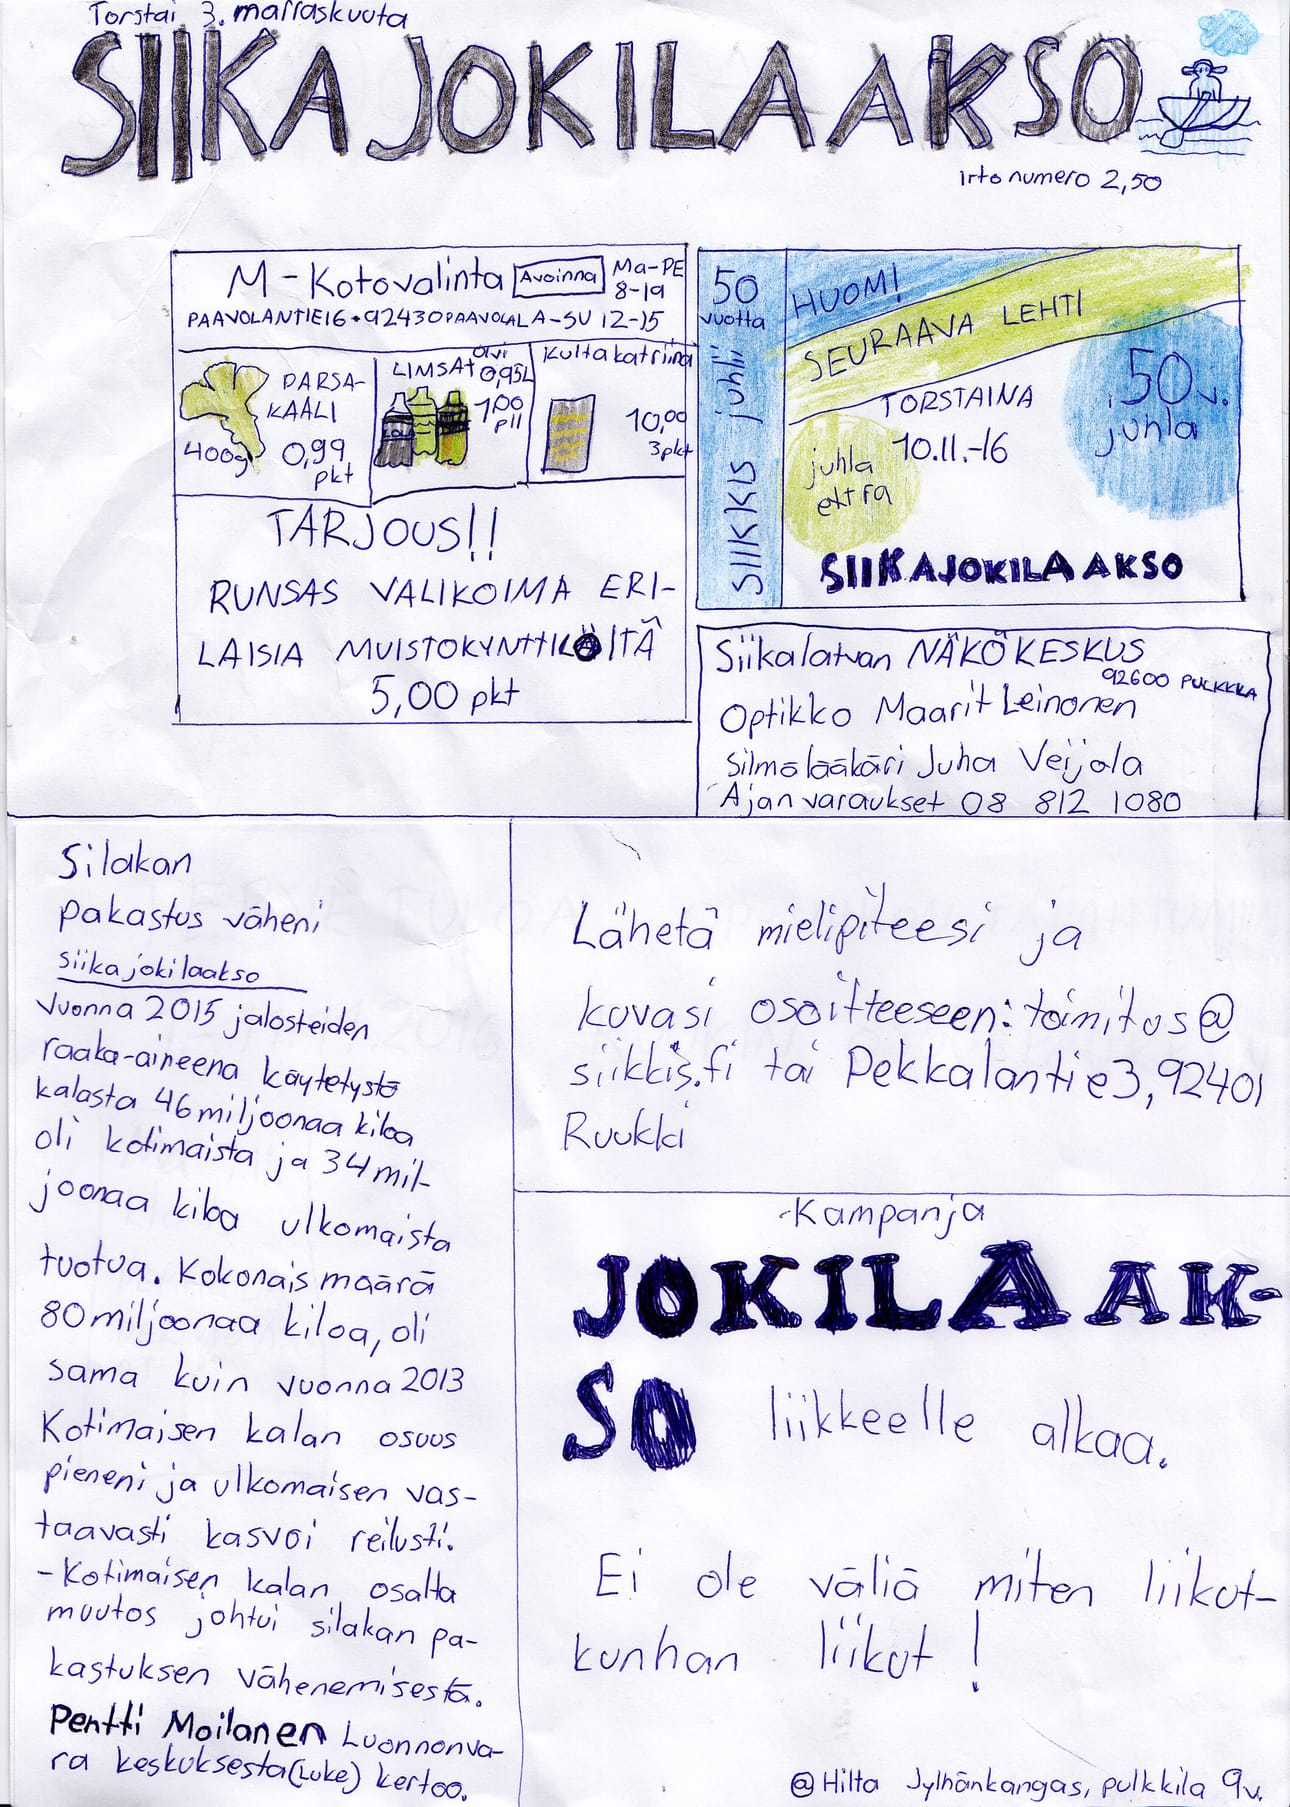 Torstai 3. marraskuuta
SIIKAJOKILAAKSO
irtonumero 2,50
M-Kotovalinta Avoinna Ma-PE
8-19
PAAVOLANTIE16•92430PAAVOLA LA-SU 12-15
PARSA-
KAALI
400g 0,99
pkt
LIMSAT ovi
0,95L
1,00
pll
Kultakatriina
10,00
3pkt
TARJOUS!!
RUNSAS VALIKOIMA ERI-
LAISIA MUISTOKYNTTILÖITÄ
5,00 pkt
50
vuotta
SIIKKIS juhlii
HUOM!
SEURAAVA LEHTI
TORSTAINA
10.11.-16
50v.
juhla
juhla
extra
SIIKAJOKILAAKSO
Siikalatvan NÄKÖKESKUS
92600 PULKKILA
Optikko Maarit Leinonen
Silmälääkäri Juha Veijola
Ajanvaraukset 08 812 1080
Silakan
pakastus väheni
siikajokilaakso
Vuonna 2015 jalosteiden
raaka-aineena käytetystä
kalasta 46miljoonaa kiloa
oli kotimaista ja 34mil-
joonaa kiloa ulkomaista
tuotua. Kokonaismäärä
80miljoonaa kiloa, oli
sama kuin vuonna 2013
Kotimaisen kalan osuus
pieneni ja ulkomaisen vas-
taavasti kasvoi reilusti.
-Kotimaisen kalan osalta
muutos johtui silakan pa-
kastuksen vähenemisestä.
Pentti Moilanen Luonnonva-
ra keskuksesta(Luke) kertoo.
Lähetä mielipiteesi ja
kuvasi osoitteeseen: toimitus@
siikkis.fi tai Pekkalantie3, 92401
Ruukki
-Kampanja
JOKILAAK-
SO liikkeelle alkaa.
Ei ole väliä miten liikut-
kunhan liikut!
@Hilta Jylhänkangas, pulkkila 9v.